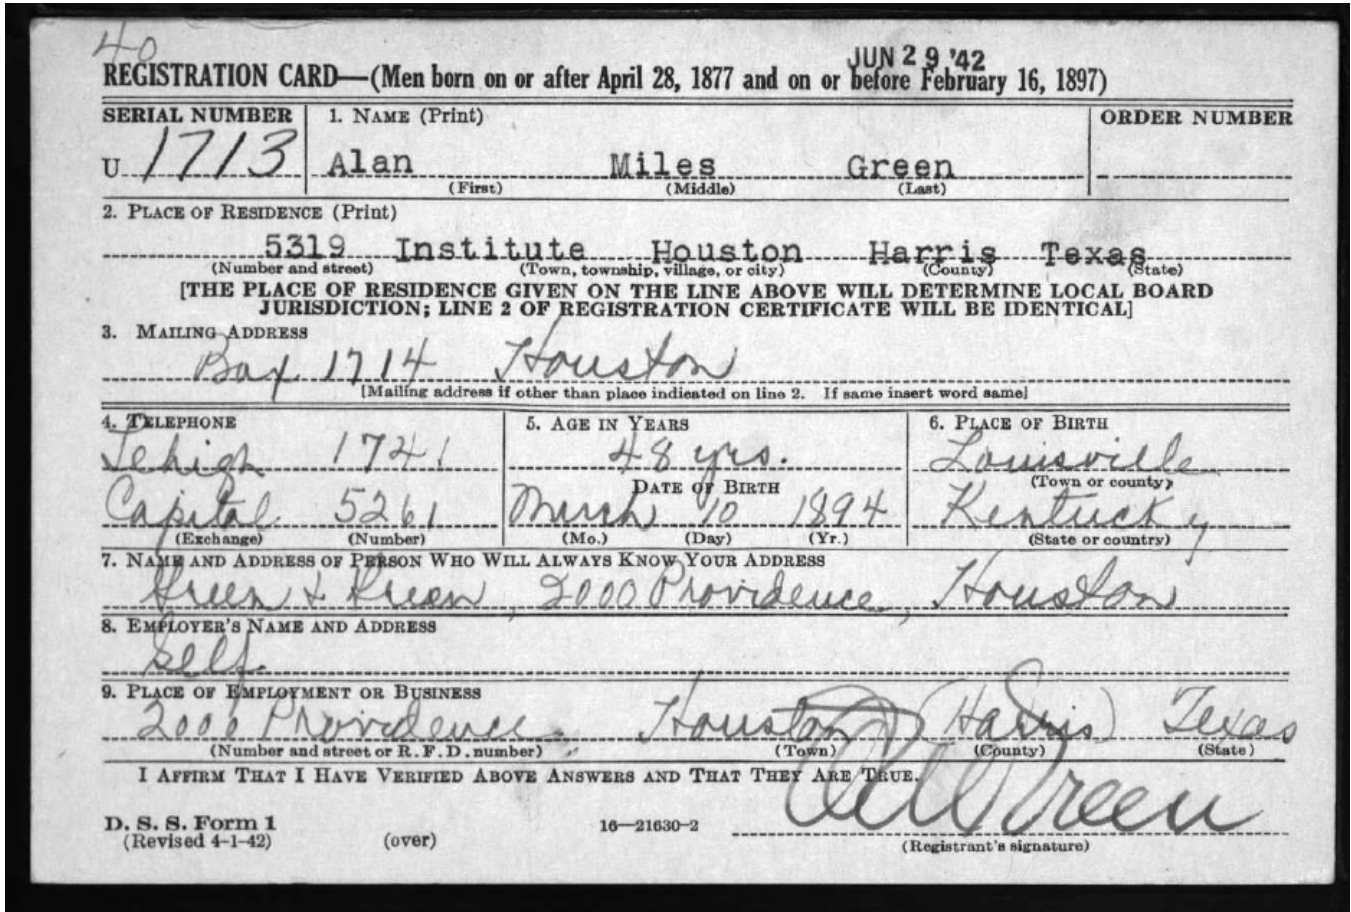 40
JUN 29 '42
REGISTRATION CARD—(Men born on or after April 28, 1877 and on or before February 16, 1897)
SERIAL NUMBER 1. NAME (Print) ORDER NUMBER
U 1713 Alan Miles Green
(First) (Middle) (Last)
2. PLACE OF RESIDENCE (Print)
5319 Institute Houston Harris Texas
(Number and street) (Town, township, village, or city) (County) (State)
[THE PLACE OF RESIDENCE GIVEN ON THE LINE ABOVE WILL DETERMINE LOCAL BOARD
JURISDICTION; LINE 2 OF REGISTRATION CERTIFICATE WILL BE IDENTICAL]
3. MAILING ADDRESS
Box 1714 Houston
[Mailing address if other than place indicated on line 2. If same insert word same]
4. TELEPHONE 5. AGE IN YEARS 6. PLACE OF BIRTH
Lehigh 1741 48 yrs. Louisville
DATE OF BIRTH (Town or county)
Capital 5261 March 10 1894 Kentucky
(Exchange) (Number) (Mo.) (Day) (Yr.) (State or country)
7. NAME AND ADDRESS OF PERSON WHO WILL ALWAYS KNOW YOUR ADDRESS
Green & Green, 2000 Providence, Houston
8. EMPLOYER'S NAME AND ADDRESS
Self
9. PLACE OF EMPLOYMENT OR BUSINESS
2000 Providence Houston (Harris) Texas
(Number and street or R.F.D. number) (Town) (County) (State)
I AFFIRM THAT I HAVE VERIFIED ABOVE ANSWERS AND THAT THEY ARE TRUE.
Green
D. S. S. Form 1
(Revised 4-1-42) (over) 16—21630-2
(Registrant's signature)